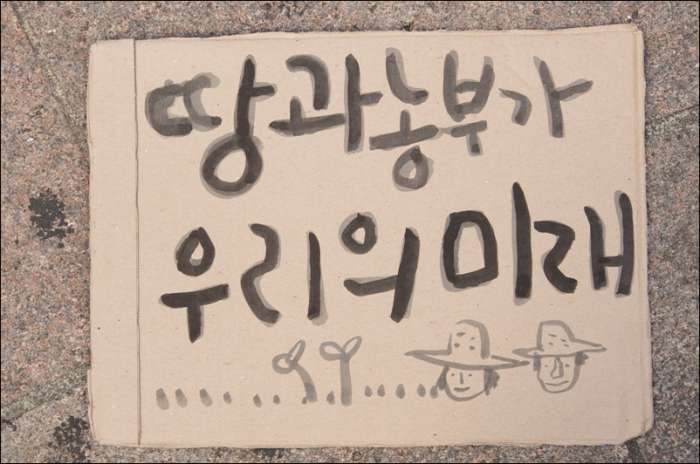 땅과농부가
우리의미래